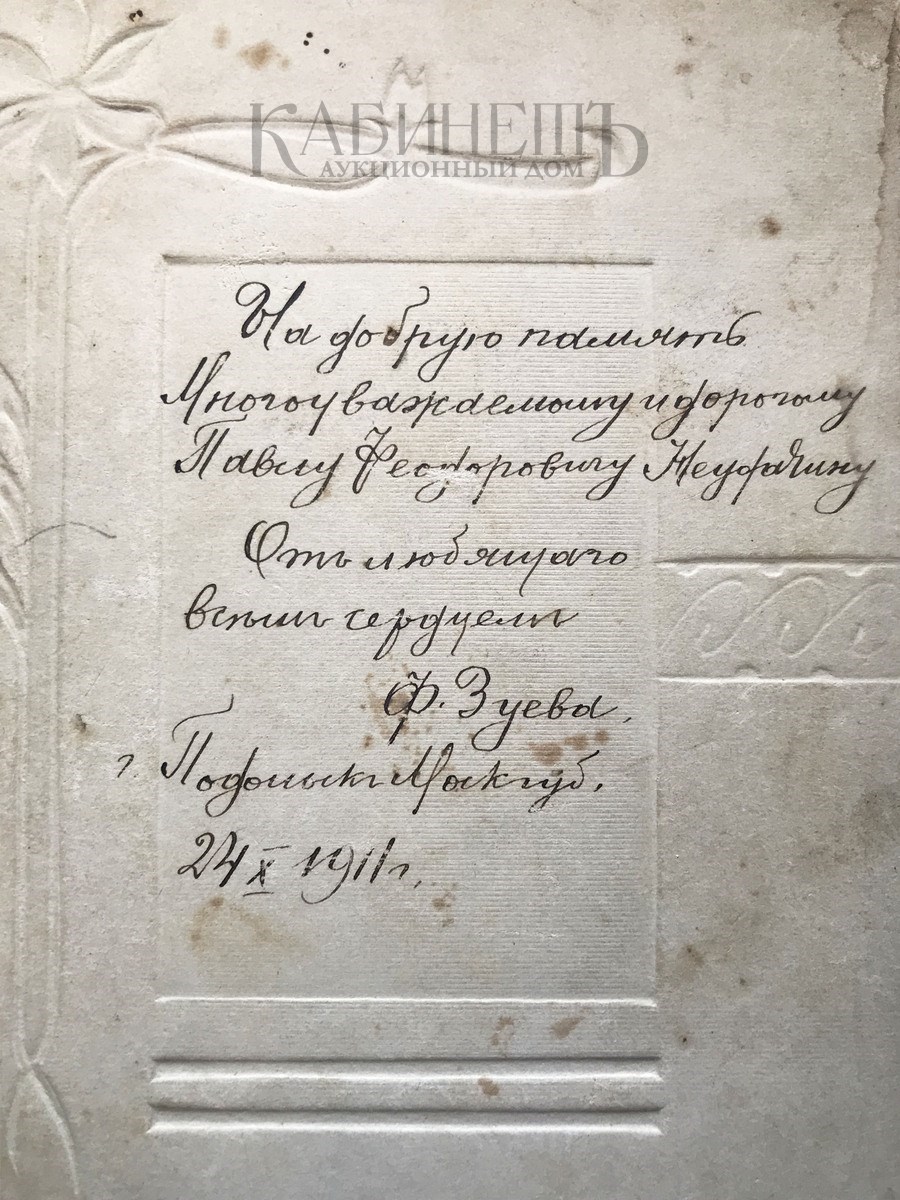 КАБИНЕТЪ
АУКЦИОННЫЙ ДОМ
На добрую память
Многоуважаемому и дорогому
Павлу Феодоровичу
Отъ любящаго
всѣмъ сердцемъ
Ф. Зуева.
г. Подольскъ Моск губ.
24 X 1911 г.